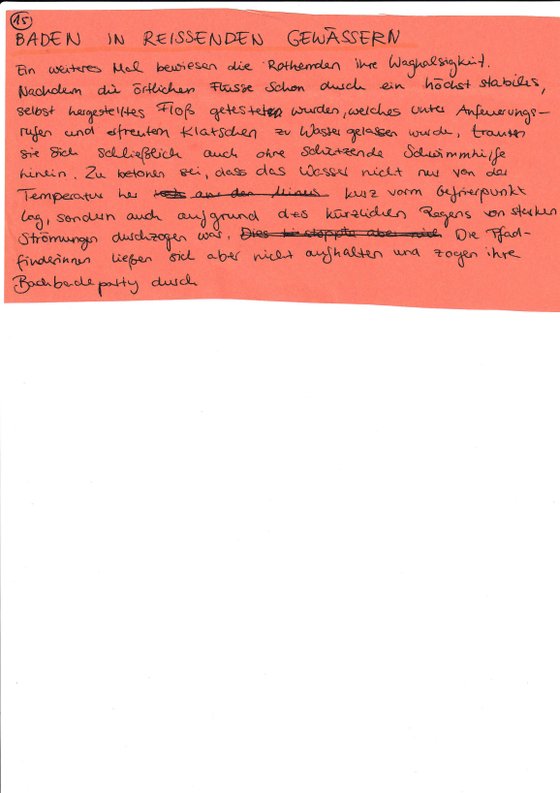 15
BADEN IN REISSENDEN GEWÄSSERN
Ein weiteres Mal bewiesen die Rothemden ihre Waghalsigkeit.
Nachdem die örtlichen Flüsse schon durch ein höchst stabiles,
selbst hergestelltes Floß getestet wurden, welches unter Anfeuerungs-
rufen und erfreutem Klatschen zu Wasser gelassen wurde, trauten
sie sich schließlich auch ohne schützende Schwimmhilfe
hinein. Zu betonen sei, dass das Wasser nicht nur von der
Temperatur her kurz vorm Gefrierpunkt
lag, sondern auch aufgrund des kürzlichen Regens von starken
Strömungen durchzogen war. Dies stoppte aber nicht Die Pfad-
finderinnen ließen sich aber nicht aufhalten und zogen ihre
Bachbadeparty durch